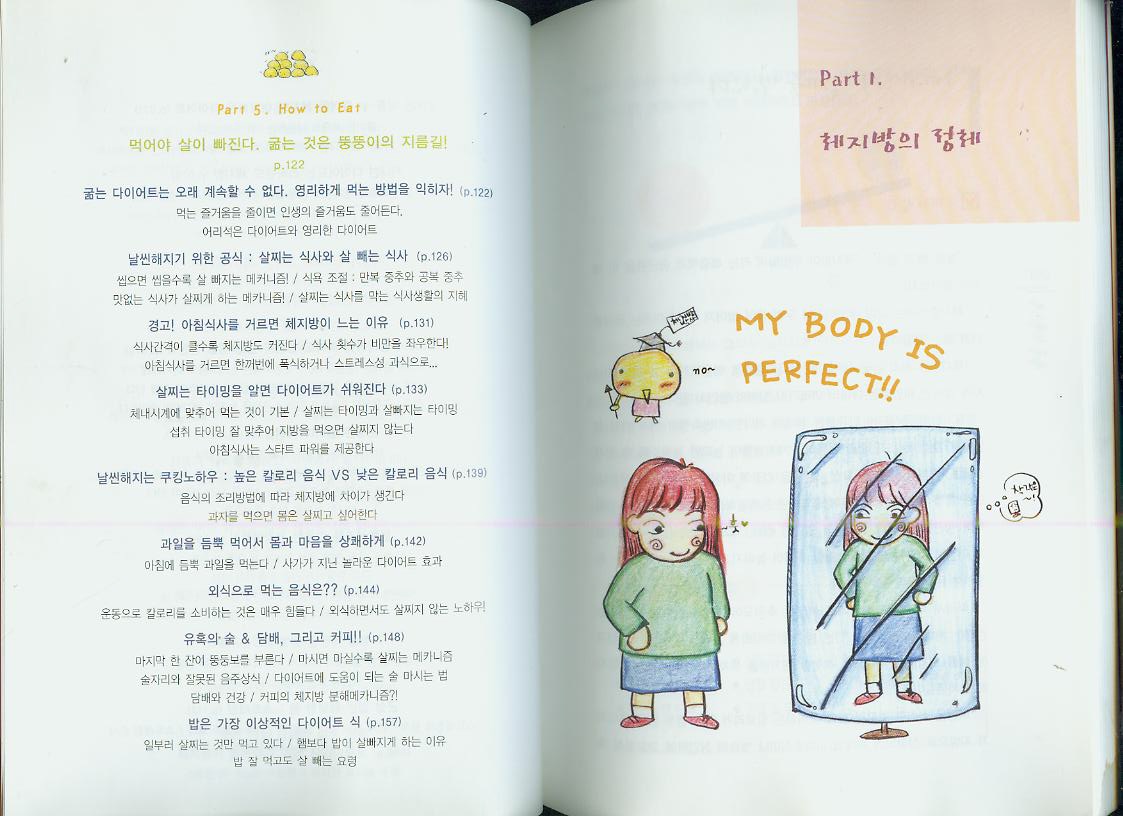 Part 5. How to Eat
먹어야 살이 빠진다. 굶는 것은 뚱뚱이의 지름길!
p.122
굶는 다이어트는 오래 계속할 수 없다. 영리하게 먹는 방법을 익히자! (p.122)
먹는 즐거움을 줄이면 인생의 즐거움도 줄어든다.
어리석은 다이어트와 영리한 다이어트
날씬해지기 위한 공식 : 살찌는 식사와 살 빼는 식사 (p.126)
씹으면 씹을수록 살 빠지는 메커니즘! / 식욕 조절 : 만복 중추와 공복 중추
맛없는 식사가 살찌게 하는 메카니즘! / 살찌는 식사를 막는 식사생활의 지혜
경고! 아침식사를 거르면 체지방이 느는 이유 (p.131)
식사간격이 클수록 체지방도 커진다 / 식사 횟수가 비만을 좌우한다!
아침식사를 거르면 한꺼번에 폭식하거나 스트레스성 과식으로...
살찌는 타이밍을 알면 다이어트가 쉬워진다 (p.133)
체내시계에 맞추어 먹는 것이 기본 / 살찌는 타이밍과 살빠지는 타이밍
섭취 타이밍 잘 맞추어 지방을 먹으면 살찌지 않는다
아침식사는 스타트 파워를 제공한다
날씬해지는 쿠킹노하우 : 높은 칼로리 음식 VS 낮은 칼로리 음식 (p.139)
음식의 조리방법에 따라 체지방에 차이가 생긴다
과자를 먹으면 몸은 살찌고 싶어한다
과일을 듬뿍 먹어서 몸과 마음을 상쾌하게 (p.142)
아침에 듬뿍 과일을 먹는다 / 사가가 지닌 놀라운 다이어트 효과
외식으로 먹는 음식은?? (p.144)
운동으로 칼로리를 소비하는 것은 매우 힘들다 / 외식하면서도 살찌지 않는 노하우!
유혹의 술 & 담배, 그리고 커피!! (p.148)
마지막 한 잔이 뚱뚱보를 부른다 / 마시면 마실수록 살찌는 메카니즘
술자리와 잘못된 음주상식 / 다이어트에 도움이 되는 술 마시는 법
담배와 건강 / 커피의 체지방 분해메카니즘?!
밥은 가장 이상적인 다이어트 식 (p.157)
일부러 살찌는 것만 먹고 있다 / 햄보다 밥이 살빠지게 하는 이유
밥 잘 먹고도 살 빼는 요령
Part 1.
체지방의 정체
MY BODY IS
PERFECT!!
체지방
no~
훗